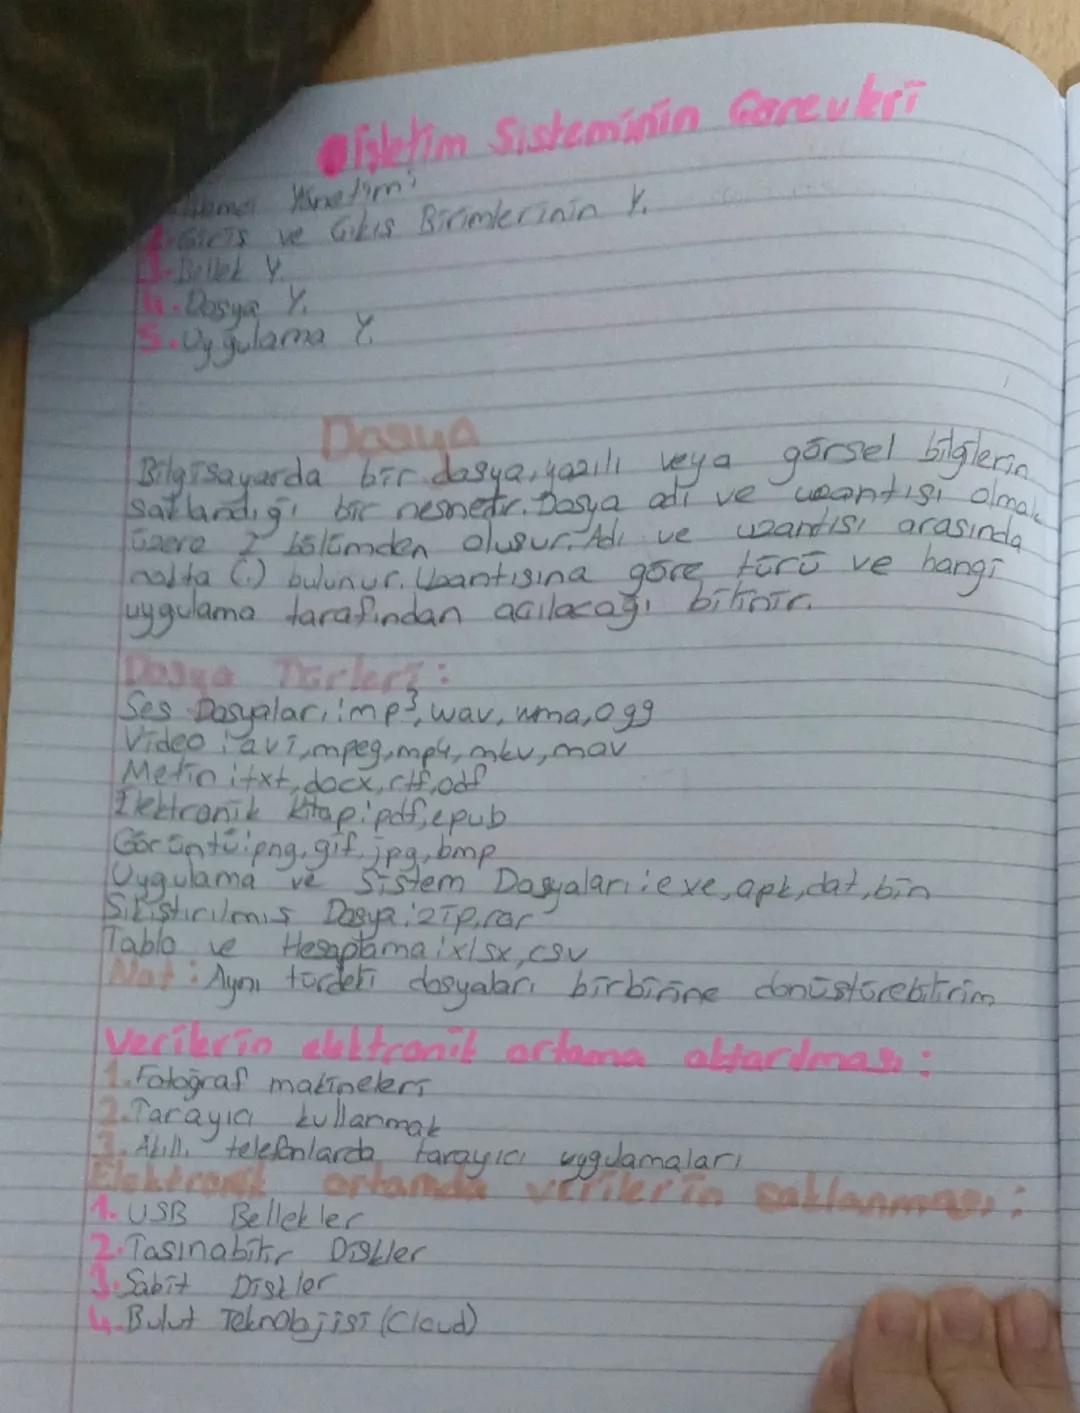 İşletim Sisteminin Görevleri
Yönetimi
2. Giriş ve Çıkış Birimlerinin Y.
3. Bellek Y.
4. Dosya Y.
5. Uygulama Y.
Dosya
Bilgisayarda bir dosya, yazılı veya görsel bilgilerin
saklandığı bir nesnedir. Dosya adı ve uzantısı olmak
üzere 2 bölümden oluşur. Adı ve uzantısı arasında
nokta (.) bulunur. Uzantısına göre türü ve hangi
uygulama tarafından açılacağı bilinir.
Dosya Türleri:
Ses Dosyaları: mp3, wav, wma, ogg
Video: avi, mpeg, mp4, mkv, mov
Metin: txt, docx, rtf, odf
Elektronik kitap: pdf, epub
Görüntü: png, gif, jpg, bmp
Uygulama ve Sistem Dosyaları: exe, apk, dat, bin
Sıkıştırılmış Dosya: zip, rar
Tablo ve Hesaplama: xlsx, csv
Not: Aynı türdeki dosyaları birbirine dönüştürebilirim
Verilerin elektronik ortama aktarılması:
1. Fotoğraf makineleri
2. Tarayıcı kullanmak
3. Akıllı telefonlarda tarayıcı uygulamaları
Elektronik ortamda verilerin saklanması:
1. USB Bellekler
2. Taşınabilir Diskler
3. Sabit Diskler
4. Bulut Teknolojisi (Cloud)